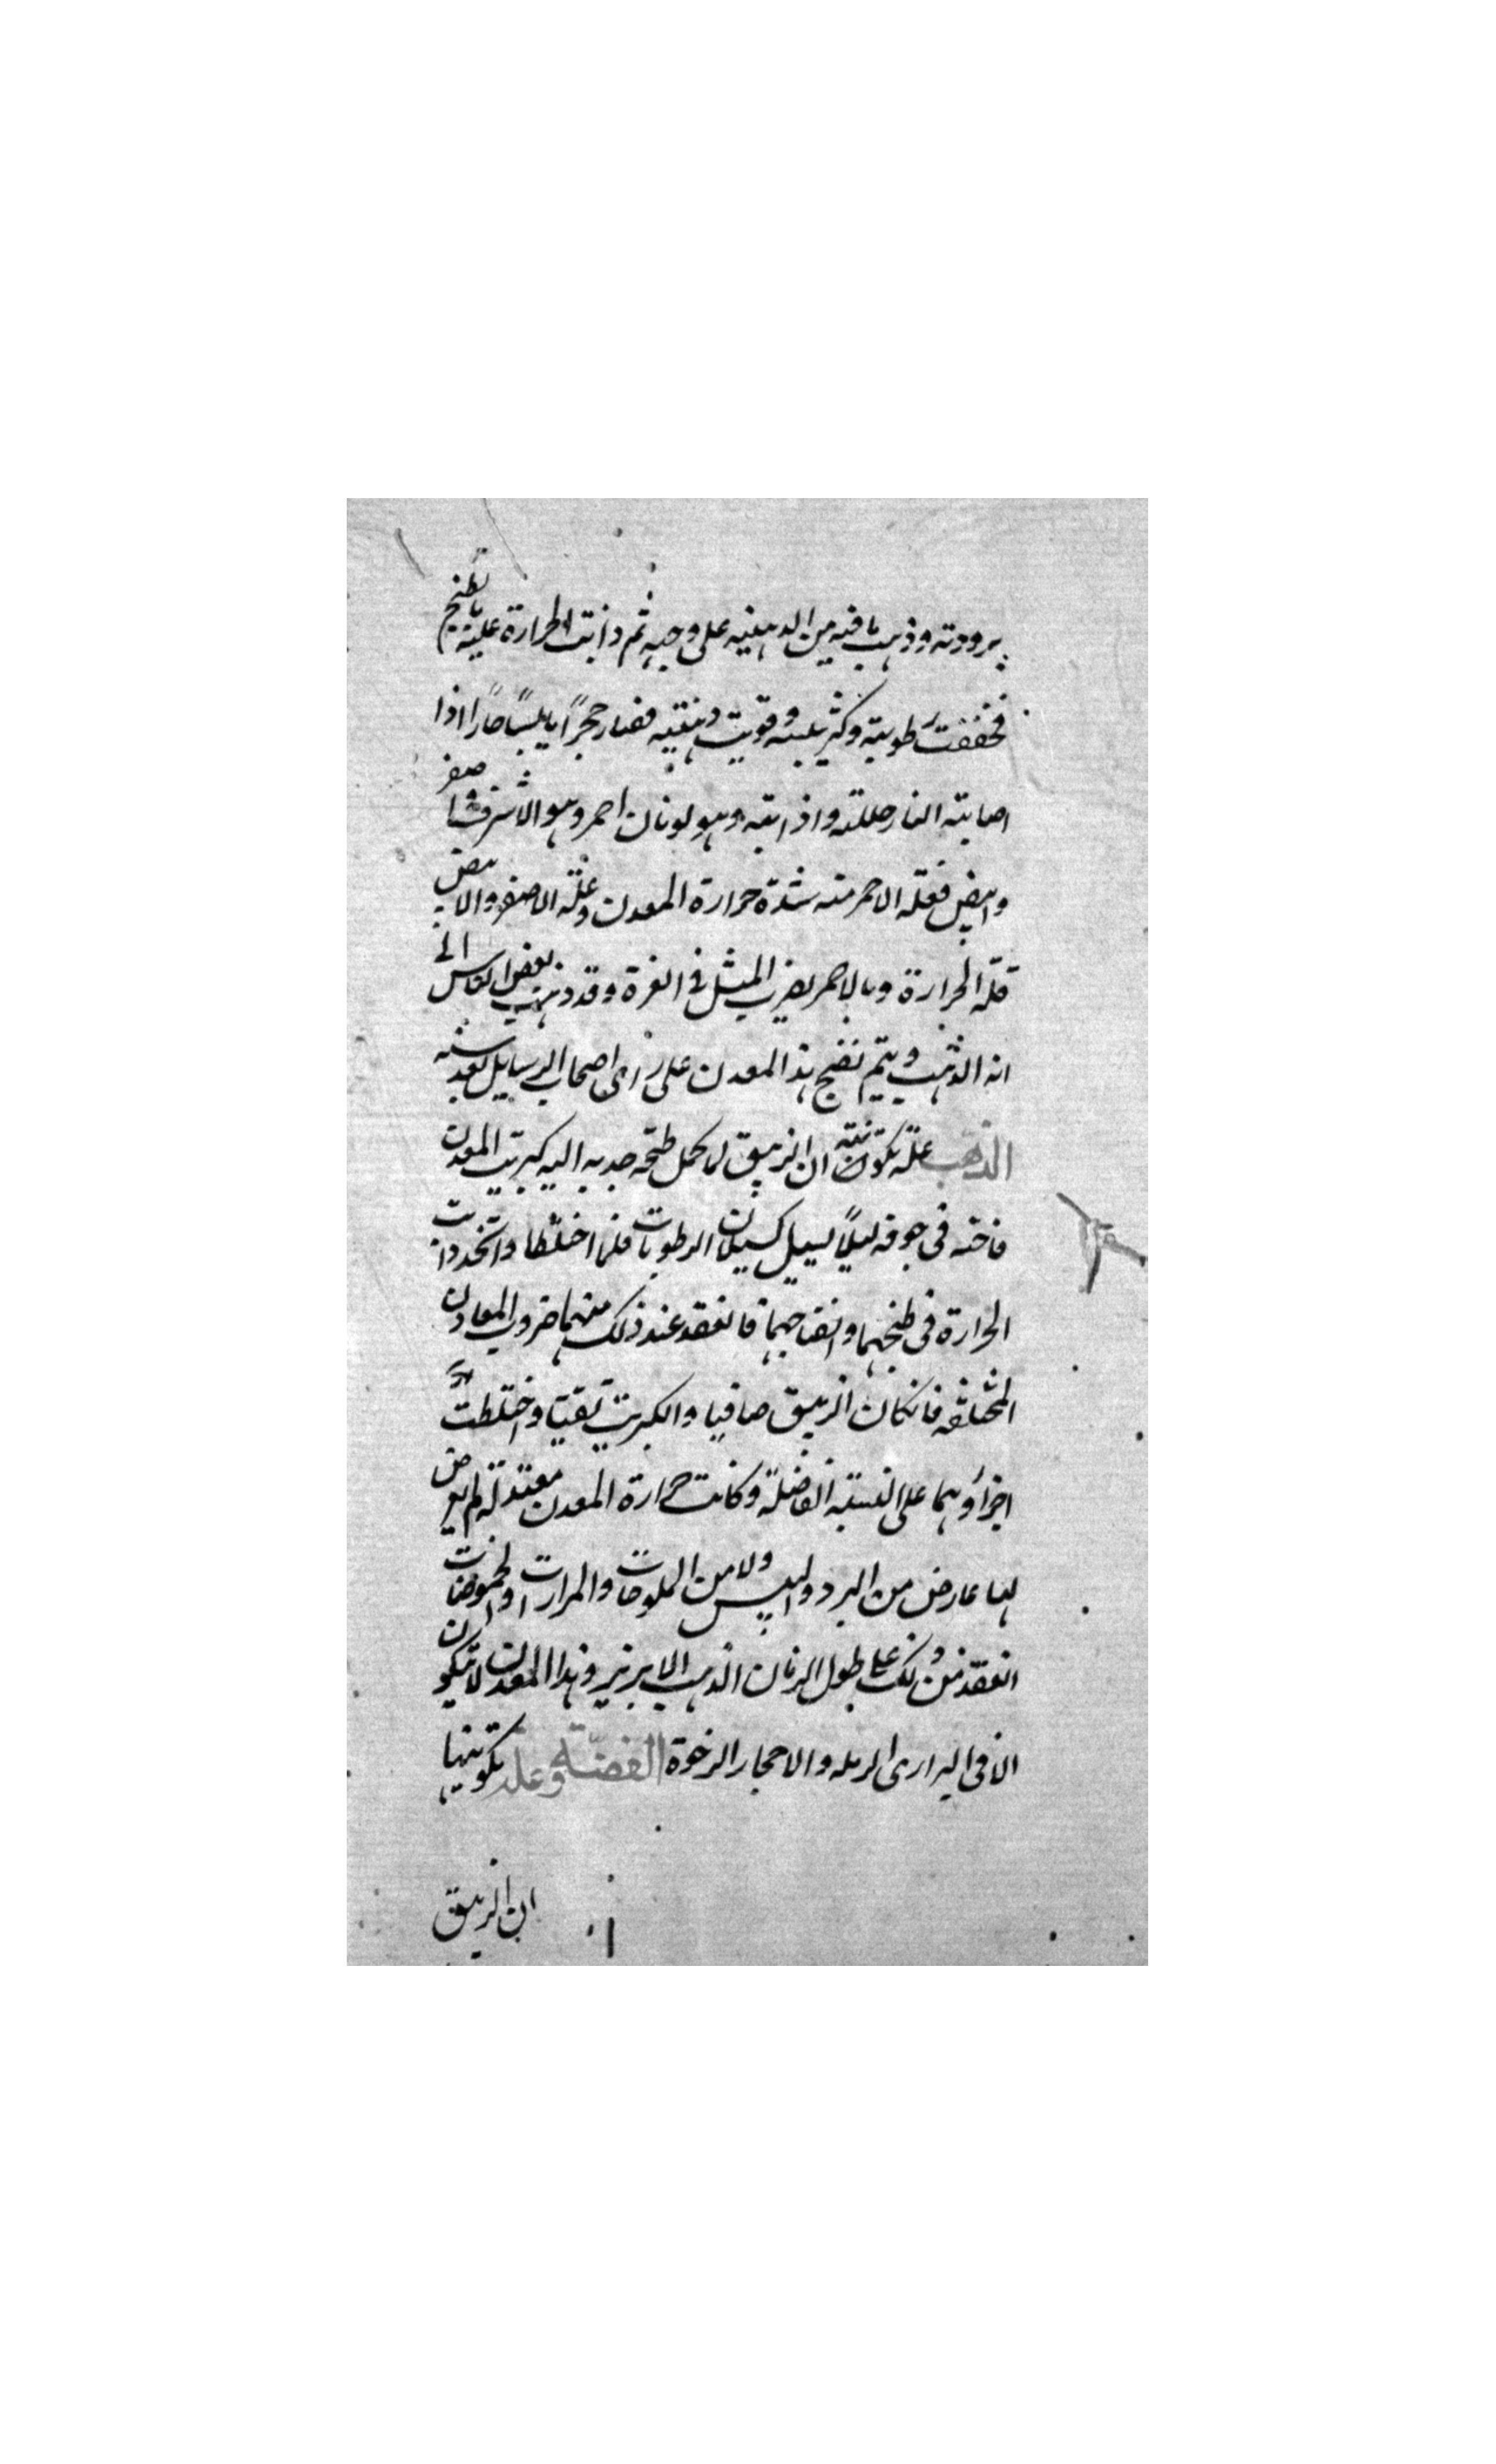 برودته وذهب ما فيه من الدهنيه على وجهه ثم دانت الحرارة عليه بالطبخ
فجففت رطوبته وكثر يبسه وقويت دهنيته فصار حجرًا يابسًا حارًا اذا
اصابته النار حللته واذابته وهو لونان احمر وهو الاشرف واصفر
وابيض فعلّه الاحمر منه شدة حرارة المعدن وعلّة الاصفر والابيض
قلّه الحرارة وبالاحمر يضرب المثل فى العزة وقد ذهب بعض الناس الى
انه الذهب ويتم نضج هذا المعدن على راى اصحاب الرسايل بعد سنه
الذهب علّه تكوينه ان الزيبق لما كمل طبخه جذبه اليه كبريت المعدن
فاخنه فى جوفه ليلًا يسيل كسيلان الرطوبات فلما اختلطا واتحدا دانت
الحرارة فى طبخهما وانضاجهما فانعقد عند ذلك منهما ضروب المعادن
المختلفه فانكان الزيبق صافيا والكبريت نقيا واختلطت
اجزاؤهما على النسبة الفاضلة وكانت حرارة المعدن معتدلة لم يعرض
لها عارض من البرد واليبس ولا من الملوحات والمرارات والحموضات
انعقد من ذلك على طول الزمان الذهب الابريز وهذا المعدن لا يتكون
الا فى البرارى الرمله والاحجار الرخوة الفضّة وعله تكوينها
ان الزيبق